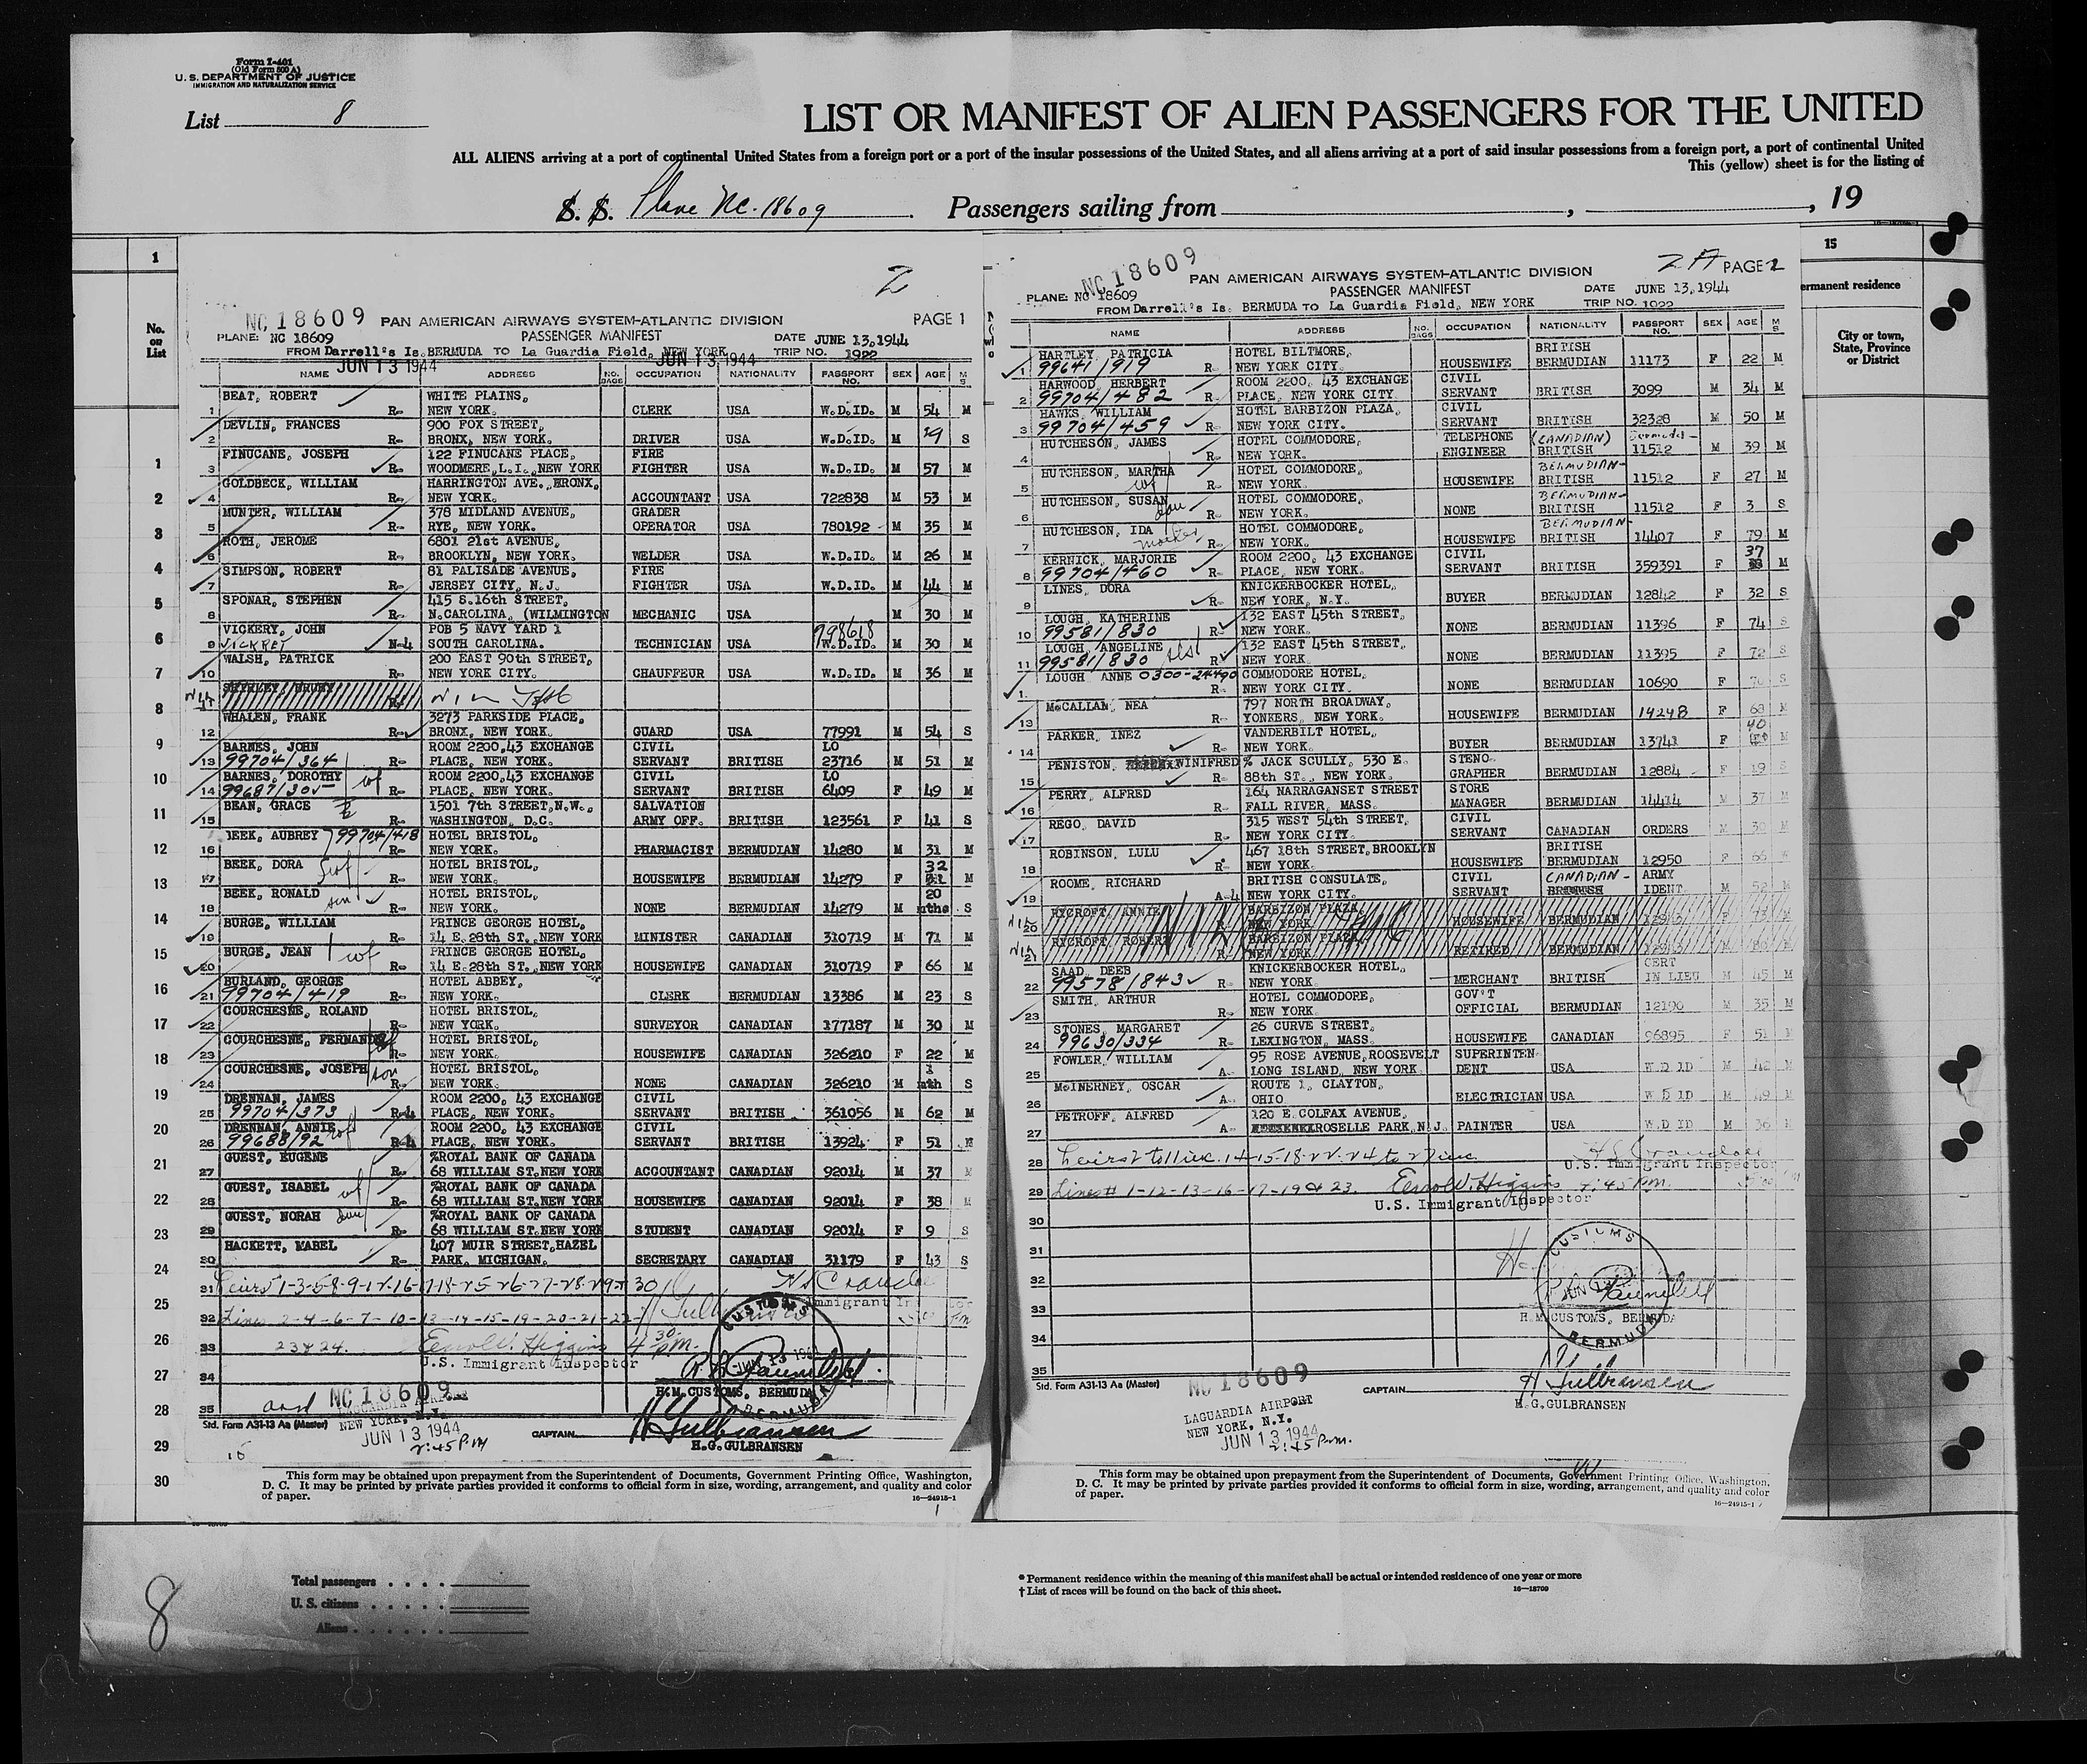 Form I-401
(Old Form 500 A)
U. S. DEPARTMENT OF JUSTICE
IMMIGRATION AND NATURALIZATION SERVICE
List 8
LIST OR MANIFEST OF ALIEN PASSENGERS FOR THE UNITED
ALL ALIENS arriving at a port of continental United States from a foreign port or a port of the insular possessions of the United States, and all aliens arriving at a port of said insular possessions from a foreign port, a port of continental United
This (yellow) sheet is for the listing of
S. S. Plane NC. 18609. Passengers sailing from , , 19
1
No. on List
1
2
3
4
5
6
7
8
9
10
11
12
13
14
15
16
17
18
19
20
21
22
23
24
25
26
27
28
29
30
2
NC 18609 PAN AMERICAN AIRWAYS SYSTEM-ATLANTIC DIVISION PAGE 1
PLANE: NC 18609 PASSENGER MANIFEST DATE JUNE 13, 1944
FROM Darrell's Is. BERMUDA TO La Guardia Field, NEW YORK TRIP NO. 1922
JUN 13 1944 JUN 13 1944
NAME ADDRESS NO. BAGS OCCUPATION NATIONALITY PASSPORT NO. SEX AGE M S
BEAT, ROBERT WHITE PLAINS,
1 R- NEW YORK. CLERK USA W.D.ID. M 54 M
DEVLIN, FRANCES 900 FOX STREET,
2 R- BRONX, NEW YORK. DRIVER USA W.D.ID. M 19 S
FINUCANE, JOSEPH 122 FINUCANE PLACE, FIRE
3 R- WOODMERE, L.I., NEW YORK FIGHTER USA W.D.ID. M 57 M
GOLDBECK, WILLIAM HARRINGTON AVE., BRONX,
4 R- NEW YORK. ACCOUNTANT USA 722838 M 53 M
MUNTER, WILLIAM 378 MIDLAND AVENUE, GRADER
5 R- RYE, NEW YORK. OPERATOR USA 780192 M 35 M
ROTH, JEROME 6801 21st AVENUE,
6 R- BROOKLYN, NEW YORK. WELDER USA W.D.ID. M 26 M
SIMPSON, ROBERT 81 PALISADE AVENUE, FIRE
7 R- JERSEY CITY, N.J. FIGHTER USA W.D.ID. M 44 M
SPONAR, STEPHEN 415 S.16th STREET,
8 R- N.CAROLINA, (WILMINGTON MECHANIC USA M 30 M
VICKERY, JOHN POB 5 NAVY YARD 1 798618
9 VICKREY N-4 SOUTH CAROLINA. TECHNICIAN USA W.D.ID. M 30 M
WALSH, PATRICK 200 EAST 90th STREET,
10 R- NEW YORK CITY. CHAUFFEUR USA W.D.ID. M 36 M
WHALEN, FRANK 3273 PARKSIDE PLACE,
12 R- BRONX, NEW YORK. GUARD USA 77991 M 54 S
BARNES, JOHN ROOM 2200,43 EXCHANGE CIVIL LO
13 99704/364 R- PLACE, NEW YORK. SERVANT BRITISH 23716 M 51 M
BARNES, DOROTHY wf ROOM 2200,43 EXCHANGE CIVIL LO
14 99687/305 R- PLACE, NEW YORK. SERVANT BRITISH 6409 F 49 M
BEAN, GRACE 1501 7th STREET,N.W., SALVATION
15 R- WASHINGTON, D.C. ARMY OFF. BRITISH 123561 F 41 S
BEEK, AUBREY 99704/418 HOTEL BRISTOL,
16 R- NEW YORK. PHARMACIST BERMUDIAN 14280 M 31 M
BEEK, DORA HOTEL BRISTOL, 32
17 R- NEW YORK. HOUSEWIFE BERMUDIAN 14279 F M
BEEK, RONALD son HOTEL BRISTOL, 20
18 R- NEW YORK. NONE BERMUDIAN 14279 M mths S
BURGE, WILLIAM PRINCE GEORGE HOTEL,
19 R- 14 E.28th ST., NEW YORK MINISTER CANADIAN 310719 M 71 M
BURGE, JEAN wf PRINCE GEORGE HOTEL,
20 R- 14 E.28th ST., NEW YORK HOUSEWIFE CANADIAN 310719 F 66 M
BURLAND, GEORGE HOTEL ABBEY,
21 99704/419 R- NEW YORK. CLERK BERMUDIAN 13386 M 23 S
COURCHESNE, ROLAND HOTEL BRISTOL,
22 R- NEW YORK. SURVEYOR CANADIAN 177187 M 30 M
COURCHESNE, FERNANDE HOTEL BRISTOL,
23 R- NEW YORK. HOUSEWIFE CANADIAN 326210 F 22 M
COURCHESNE, JOSEPH son HOTEL BRISTOL, 1
24 R- NEW YORK. NONE CANADIAN 326210 M mth S
DRENNAN, JAMES ROOM 2200, 43 EXCHANGE CIVIL
25 99704/373 R-4 PLACE, NEW YORK. SERVANT BRITISH 361056 M 62 M
DRENNAN, ANNIE wf ROOM 2200, 43 EXCHANGE CIVIL
26 99688/92 R-4 PLACE, NEW YORK. SERVANT BRITISH 13924 F 51 M
GUEST, EUGENE %ROYAL BANK OF CANADA
27 R- 68 WILLIAM ST.NEW YORK ACCOUNTANT CANADIAN 92014 M 37 M
GUEST, ISABEL wf %ROYAL BANK OF CANADA
28 R- 68 WILLIAM ST.NEW YORK HOUSEWIFE CANADIAN 92014 F 38 M
GUEST, NORAH dau %ROYAL BANK OF CANADA
29 R- 68 WILLIAM ST.NEW YORK STUDENT CANADIAN 92014 F 9 S
HACKETT, MABEL 407 MUIR STREET,HAZEL
30 R- PARK, MICHIGAN. SECRETARY CANADIAN 31179 F 43 S
31
32 Lines 2-4-6-7-10-13-14-15-19-20-21-22-
33 23 & 24. Errol W. Higgins 4:30 P.M.
U.S. Immigrant Inspector
34 H.M. CUSTOMS, BERMUDA
35
CUSTOMS JUN 13 1944 BERMUDA
NC 18609
LAGUARDIA AIRPORT
NEW YORK, N.Y.
JUN 13 1944
2:45 P.M
Std. Form A31-13 Aa (Master) CAPTAIN H Gulbransen
H.G.GULBRANSEN
This form may be obtained upon prepayment from the Superintendent of Documents, Government Printing Office, Washington,
D. C. It may be printed by private parties provided it conforms to official form in size, wording, arrangement, and quality and color
of paper.
16—24915-1
NC 18609 2A PAGE 2
PAN AMERICAN AIRWAYS SYSTEM-ATLANTIC DIVISION
PLANE: NC 18609 PASSENGER MANIFEST DATE JUNE 13, 1944
FROM Darrell's Is. BERMUDA TO La Guardia Field, NEW YORK TRIP NO. 1922
NAME ADDRESS NO. BAGS OCCUPATION NATIONALITY PASSPORT NO. SEX AGE M S
HARTLEY, PATRICIA HOTEL BILTMORE, BRITISH
1 99641/919 R- NEW YORK CITY. HOUSEWIFE BERMUDIAN 11173 F 22 M
HARWOOD, HERBERT ROOM 2200, 43 EXCHANGE CIVIL
2 99704/482 R- PLACE, NEW YORK CITY. SERVANT BRITISH 3099 M 34 M
HAWKS, WILLIAM HOTEL BARBIZON PLAZA, CIVIL
3 99704/459 R- NEW YORK CITY. SERVANT BRITISH 32328 M 50 M
HUTCHESON, JAMES HOTEL COMMODORE, TELEPHONE (CANADIAN)
4 R- NEW YORK. ENGINEER BRITISH 11512 M 39 M
HUTCHESON, MARTHA HOTEL COMMODORE, BERMUDIAN-
5 wf R- NEW YORK. HOUSEWIFE BRITISH 11512 F 27 M
HUTCHESON, SUSAN HOTEL COMMODORE, BERMUDIAN-
6 dau R- NEW YORK. NONE BRITISH 11512 F 3 S
HUTCHESON, IDA HOTEL COMMODORE, BERMUDIAN-
7 mother R- NEW YORK. HOUSEWIFE BRITISH 14407 F 79 M
KERNICK, MARJORIE ROOM 2200, 43 EXCHANGE CIVIL 37
8 99704/460 R- PLACE, NEW YORK. SERVANT BRITISH 359391 F M
LINES, DORA KNICKERBOCKER HOTEL,
9 R- NEW YORK, N.Y. BUYER BERMUDIAN 12842 F 32 S
LOUGH, KATHERINE 132 EAST 45th STREET,
10 99581/830 R- NEW YORK. NONE BERMUDIAN 11396 F 74 S
LOUGH, ANGELINE 132 EAST 45th STREET,
11 99581/830 sist R- NEW YORK. NONE BERMUDIAN 11395 F 72 S
LOUGH ANNE 0300-24490 COMMODORE HOTEL,
1. R- NEW YORK CITY. NONE BERMUDIAN 10690 F 70 S
McCALLAN, NEA 797 NORTH BROADWAY,
13 R- YONKERS, NEW YORK. HOUSEWIFE BERMUDIAN 14248 F 68 M
PARKER, INEZ VANDERBILT HOTEL, 40
14 R- NEW YORK. BUYER BERMUDIAN 13741 F M
PENISTON, WINIFRED % JACK SCULLY, 530 E. STENO-
15 R- 88th ST., NEW YORK. GRAPHER BERMUDIAN 12884 F 19 S
PERRY, ALFRED 164 NARRAGANSET STREET STORE
16 R- FALL RIVER, MASS. MANAGER BERMUDIAN 14414 M 37 M
REGO, DAVID 315 WEST 54th STREET, CIVIL
17 R- NEW YORK CITY. SERVANT CANADIAN ORDERS M 30 M
ROBINSON, LULU 467 18th STREET,BROOKLYN BRITISH
18 R- NEW YORK. HOUSEWIFE BERMUDIAN 12950 F 66 W
ROOME, RICHARD BRITISH CONSULATE, CIVIL CANADIAN- ARMY
19 A-4 NEW YORK CITY. SERVANT BRITISH IDENT. M 52 M
RYCROFT, ANNIE BARBIZON PLAZA,
20 NEW YORK HOUSEWIFE BERMUDIAN
RYCROFT, ROBERT BARBIZON PLAZA,
21 R- NEW YORK RETIRED BERMUDIAN
SAAD, DEEB KNICKERBOCKER HOTEL, CERT
22 99578/843 R- NEW YORK. MERCHANT BRITISH IN LIEU M 45 M
SMITH, ARTHUR HOTEL COMMODORE, GOV'T
23 R- NEW YORK. OFFICIAL BERMUDIAN 12190 M 35 M
STONES, MARGARET 26 CURVE STREET,
24 99630/334 R- LEXINGTON, MASS. HOUSEWIFE CANADIAN 96895 F 51 M
FOWLER, WILLIAM 95 ROSE AVENUE,ROOSEVELT SUPERINTEN-
25 A- LONG ISLAND, NEW YORK. DENT USA W D ID M 42 M
McINERNEY, OSCAR ROUTE 1, CLAYTON,
26 A- OHIO ELECTRICIAN USA W D ID M 49 M
PETROFF, ALFRED 120 E.COLFAX AVENUE,
27 A- ROSELLE PARK,N.J. PAINTER USA W.D ID M 36 M
28
U.S. Immigrant Inspector
29 Lines# 1-12-13-16-17-19 & 23. Errol W. Higgins 4:45 P.M.
U.S. Immigrant Inspector
30
31
32
33
34
35
CUSTOMS JUN 13 BERMUDA
H.M. CUSTOMS, BERMUDA
Std. Form A31-13 Aa (Master) NC 18609 CAPTAIN H Gulbransen
H.G.GULBRANSEN
LAGUARDIA AIRPORT
NEW YORK, N.Y.
JUN 13 1944
2:45 P.M.
This form may be obtained upon prepayment from the Superintendent of Documents, Government Printing Office, Washington,
D. C. It may be printed by private parties provided it conforms to official form in size, wording, arrangement, and quality and color
of paper.
16—24915-1
15
ermanent residence
City or town,
State, Province
or District
8
Total passengers . . . .
U. S. citizens . . . . .
Aliens . . . . . .
* Permanent residence within the meaning of this manifest shall be actual or intended residence of one year or more
† List of races will be found on the back of this sheet. 16—18709